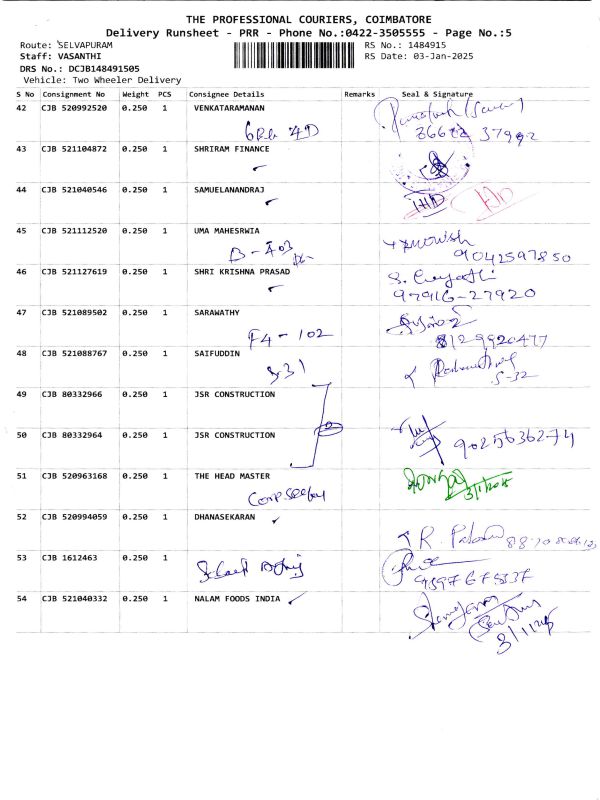 THE PROFESSIONAL COURIERS, COIMBATORE
Delivery Runsheet - PRR - Phone No.:0422-3505555 - Page No.:5
Route: SELVAPURAM
RS No.: 1484915
Staff: VASANTHI
RS Date: 03-Jan-2025
DRS No.: DCJB148491505
Vehicle: Two Wheeler Delivery
S No Consignment No Weight PCS Consignee Details Remarks Seal & Signature
42 CJB 520992520 0.250 1 VENKATARAMANAN
43 CJB 521104872 0.250 1 SHRIRAM FINANCE
44 CJB 521040546 0.250 1 SAMUELANANDRAJ
45 CJB 521112520 0.250 1 UMA MAHESRWIA
B-A03
9042597850
46 CJB 521127619 0.250 1 SHRI KRISHNA PRASAD
97916-27920
47 CJB 521089502 0.250 1 SARAWATHY
F4-102
8129920477
48 CJB 521088767 0.250 1 SAIFUDDIN
S-32
49 CJB 80332966 0.250 1 JSR CONSTRUCTION
50 CJB 80332964 0.250 1 JSR CONSTRUCTION
9025636274
51 CJB 520963168 0.250 1 THE HEAD MASTER
3/1/2025
52 CJB 520994059 0.250 1 DHANASEKARAN
53 CJB 1612463 0.250 1
54 CJB 521040332 0.250 1 NALAM FOODS INDIA
3/1/25